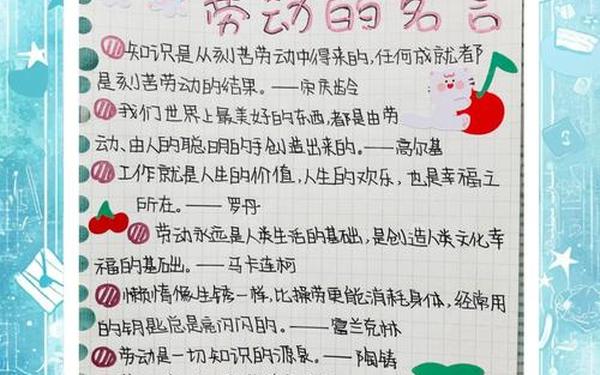 劳动的名言
知识是从刻苦劳动中得来的,任何成就都
是刻苦劳动的结果。——宋庆龄
我们世界上最美好的东西,都是由劳
动、由人的聪明的手创造出来的。——高尔基
工作就是人生的价值,人生的欢乐,也是幸福之
所在。——罗丹
劳动永远是人类生活的基础,是创造人类文化幸
福的基础。——马卡连柯
懒惰像生锈一样,比操劳更能消耗身体,经常用
的钥匙总是亮闪闪的。——富兰克林
劳动是一切知识的源泉。——陶铸